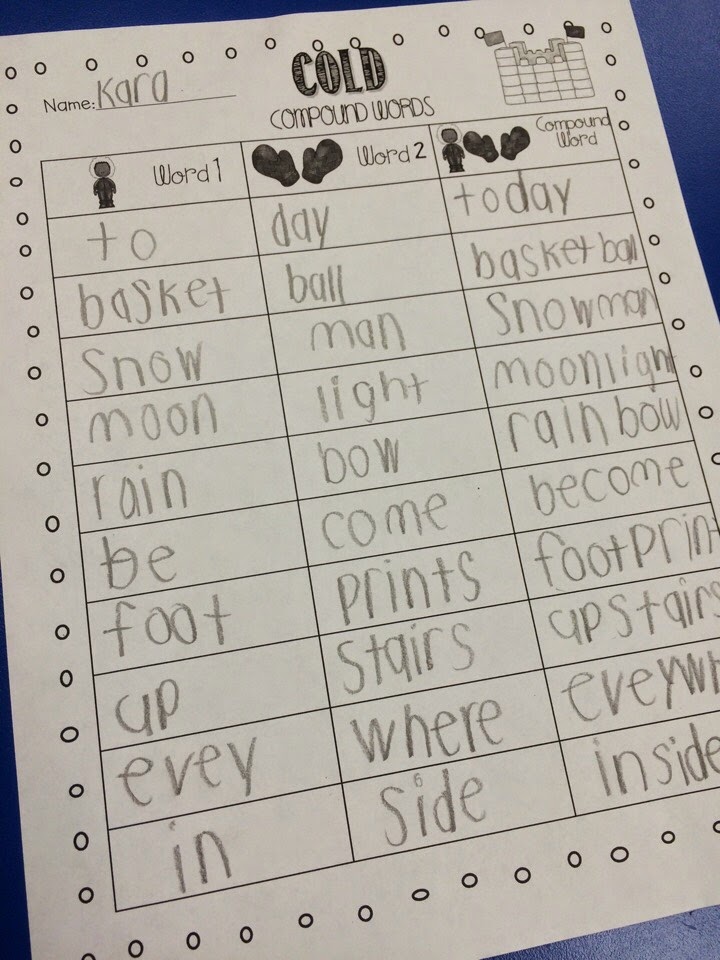 COLD
Name: Kara
COMPOUND WORDS
Word 1 Word 2 Compound Word
to day today
basket ball basketball
Snow man Snowman
moon light moonlight
rain bow rainbow
be come become
foot prints footprint
up stairs upstairs
evey where eveywh
in side inside